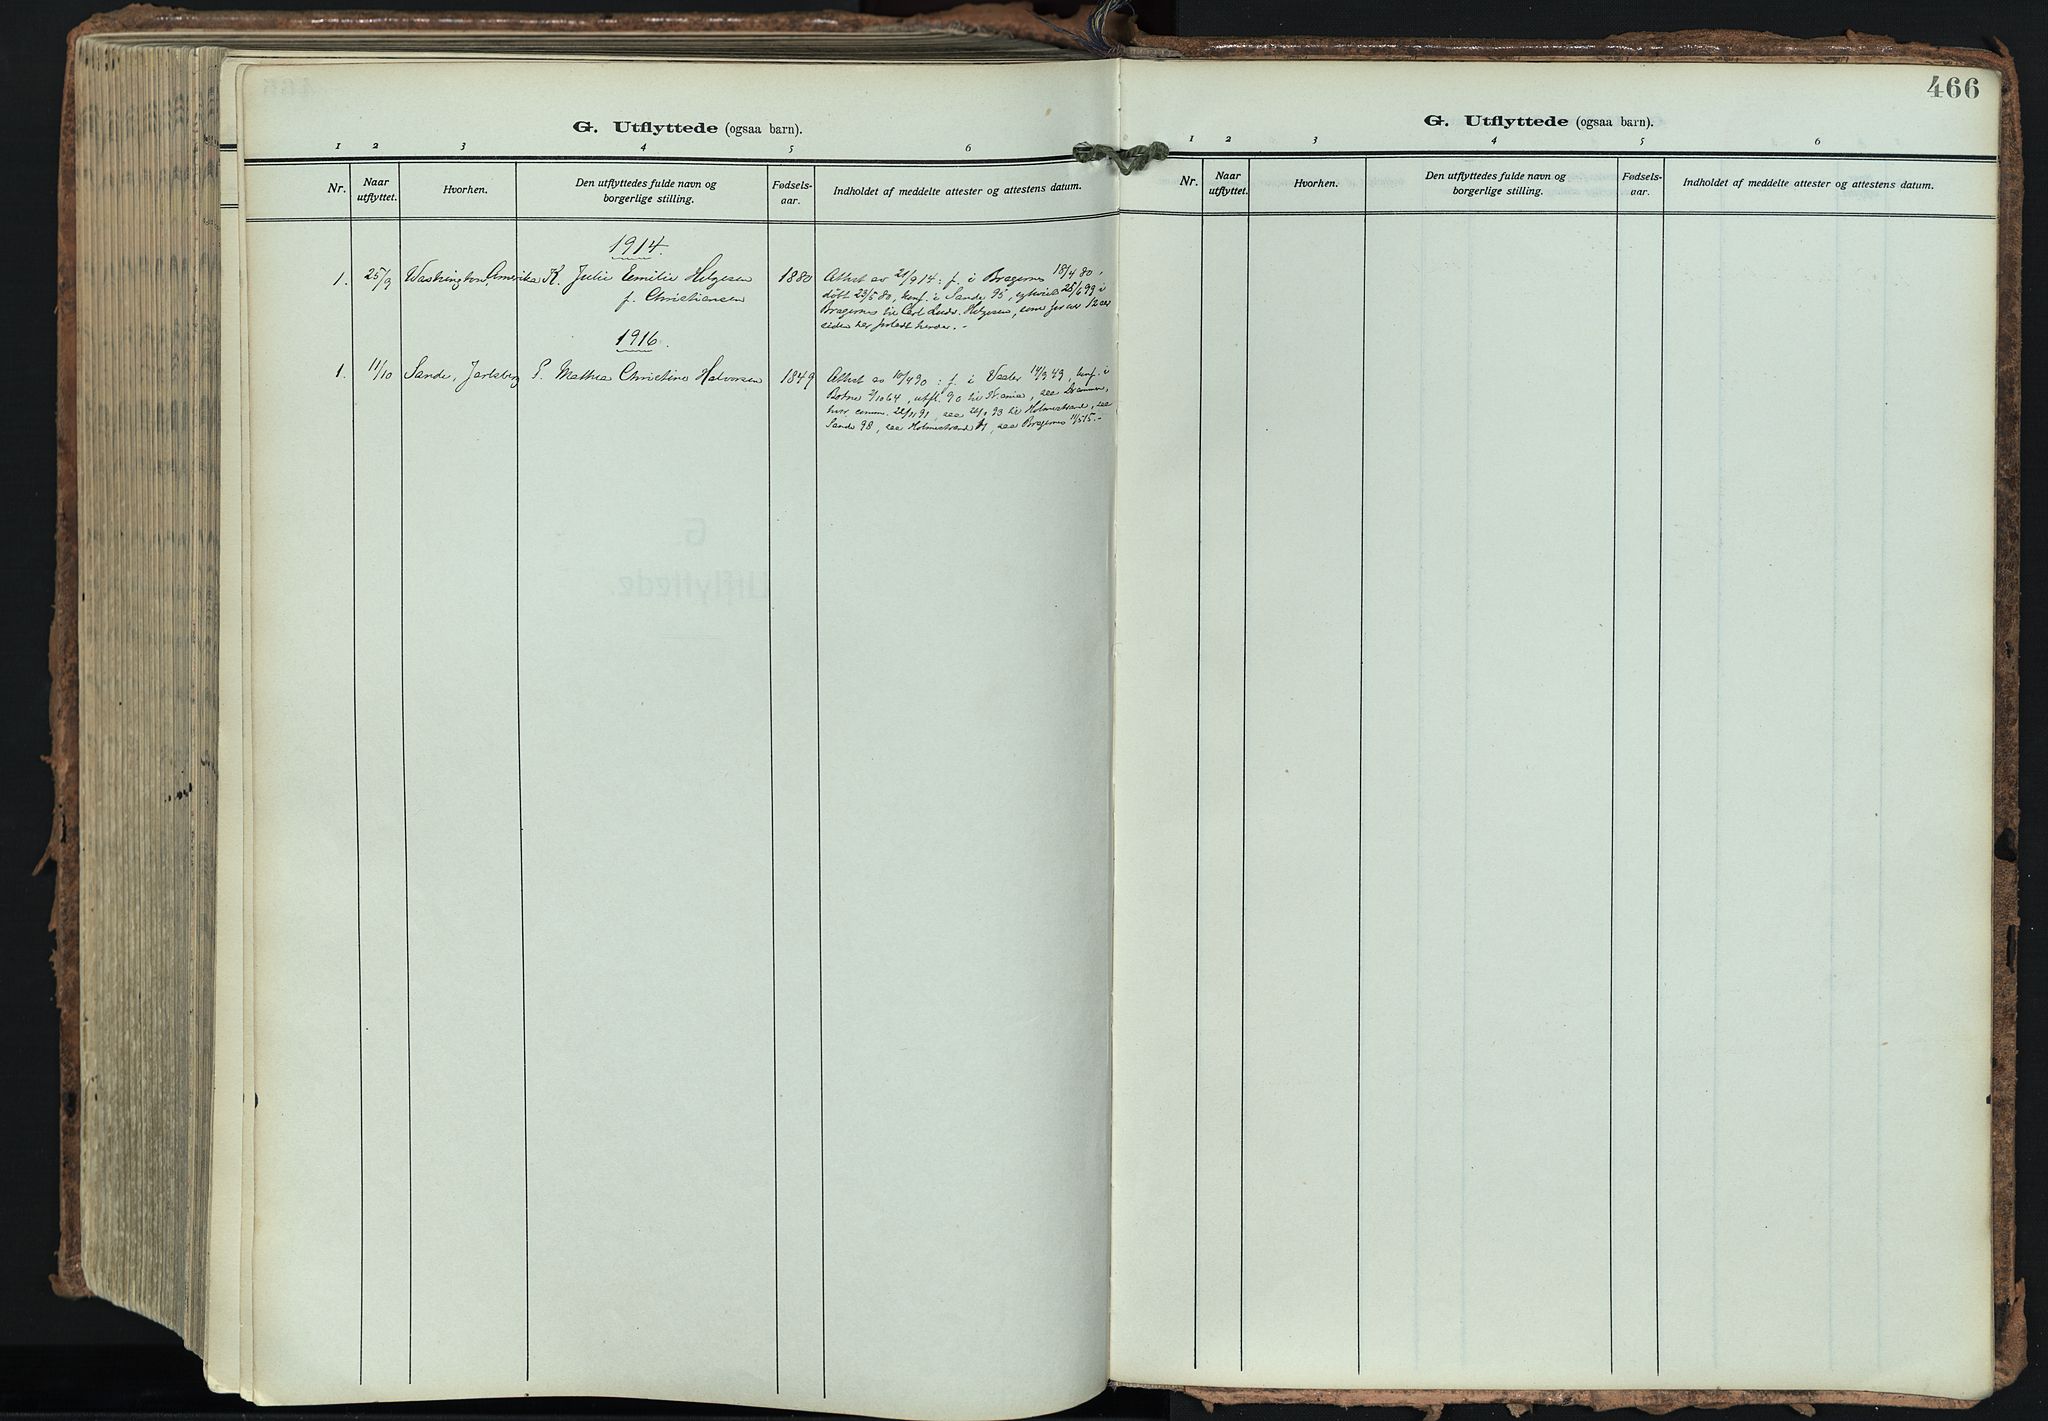 G. Utflyttede (ogsaa barn).
1 2 3 4 5 6
Nr. Naar utflyttet. Hvorhen. Den utflyttedes fulde navn og borgerlige stilling. Fødselsaar. Indholdet af meddelte attester og attestens datum.
1914.
1. 25/9 Washington, Amerika K. Julie Emilie Helgesen 1880 Attest av 21/9 14: f. i Bragernes 18/4 80,
f. Christiansen døbt 23/5 80, konf. i Sande 95, egteviet 25/6 99 i
Bragernes til Carl Ludv. Helgesen, som for 12 aar
siden har forladt hende. -
1916.
1. 11/10 Sande, Jarlsberg P. Mathea Christine Halvorsen 1849 Attest av 10/4 90: f. i Vaaler 14/3 49, konf. i
Botne 64, utfl. 90 til Kr.ania, saa Drammen,
hvor comm. 22/11 91, saa 93 til Holmestrand, saa
Sande 98, saa Holmestrand, saa Bragernes 15. -
466
G. Utflyttede (ogsaa barn).
1 2 3 4 5 6
Nr. Naar utflyttet. Hvorhen. Den utflyttedes fulde navn og borgerlige stilling. Fødselsaar. Indholdet af meddelte attester og attestens datum.